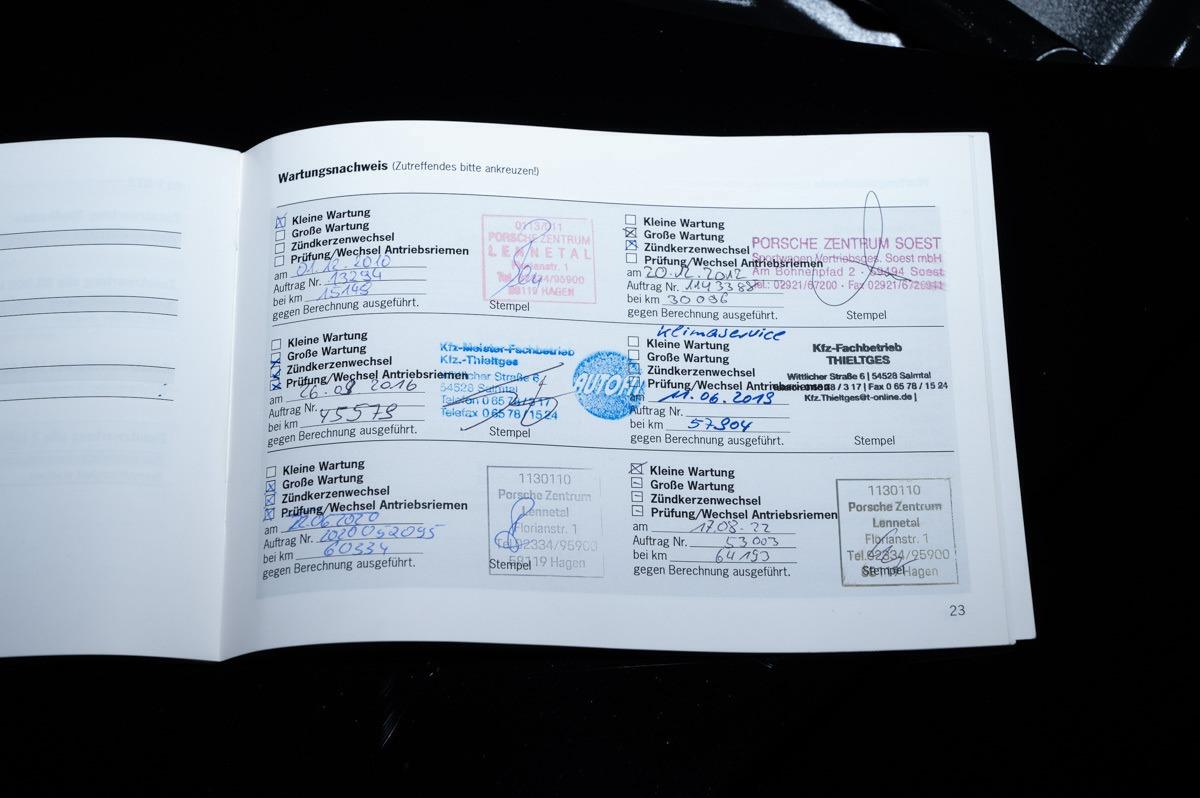 Wartungsnachweis (Zutreffendes bitte ankreuzen!)
Kleine Wartung
Große Wartung
Zündkerzenwechsel
Prüfung/Wechsel Antriebsriemen
am 01.12.2010
Auftrag Nr. 13294
bei km 15149
gegen Berechnung ausgeführt.
Stempel
PORSCHE ZENTRUM
LENNETAL
58119 HAGEN
Kleine Wartung
Große Wartung
Zündkerzenwechsel
Prüfung/Wechsel Antriebsriemen
am 20.12.2012
Auftrag Nr.
bei km 30096
gegen Berechnung ausgeführt.
Stempel
PORSCHE ZENTRUM SOEST
Sportwagen Vertriebsges. Soest mbH
Am Bohnenpfad 2 · 59494 Soest
Tel.: 02921/67200 · Fax 02921/672
Kleine Wartung
Große Wartung
Zündkerzenwechsel
Prüfung/Wechsel Antriebsriemen
am 2016
Auftrag Nr.
bei km 45579
gegen Berechnung ausgeführt.
Stempel
Kfz-Meister-Fachbetrieb
Kfz.-Thieltges
Wittlicher Straße 6
54528 Salmtal
Telefon 0 65 78/3 17
Telefax 0 65 78 / 15 24
Klimaservice
Kleine Wartung
Große Wartung
Zündkerzenwechsel
Prüfung/Wechsel Antriebsriemen
am 11.06.2019
Auftrag Nr.
bei km 57904
gegen Berechnung ausgeführt.
Stempel
Kfz-Fachbetrieb
THIELTGES
Wittlicher Straße 6 | 54528 Salmtal
/ 3 17 | Fax 0 65 78 / 15 24
Kfz.Thieltges@t-online.de |
Kleine Wartung
Große Wartung
Zündkerzenwechsel
Prüfung/Wechsel Antriebsriemen
am 12.06.2020
Auftrag Nr. 2020052095
bei km 60334
gegen Berechnung ausgeführt.
Stempel
1130110
Porsche Zentrum
Lennetal
Florianstr. 1
Tel.02334/95900
58119 Hagen
Kleine Wartung
Große Wartung
Zündkerzenwechsel
Prüfung/Wechsel Antriebsriemen
am 17.08.22
Auftrag Nr. 53003
bei km 64193
gegen Berechnung ausgeführt.
Stempel
1130110
Porsche Zentrum
Lennetal
Florianstr. 1
Tel.02334/95900
58119 Hagen
23